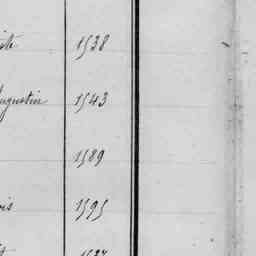 ite 1538
ugustin 1543
1589
is 1595